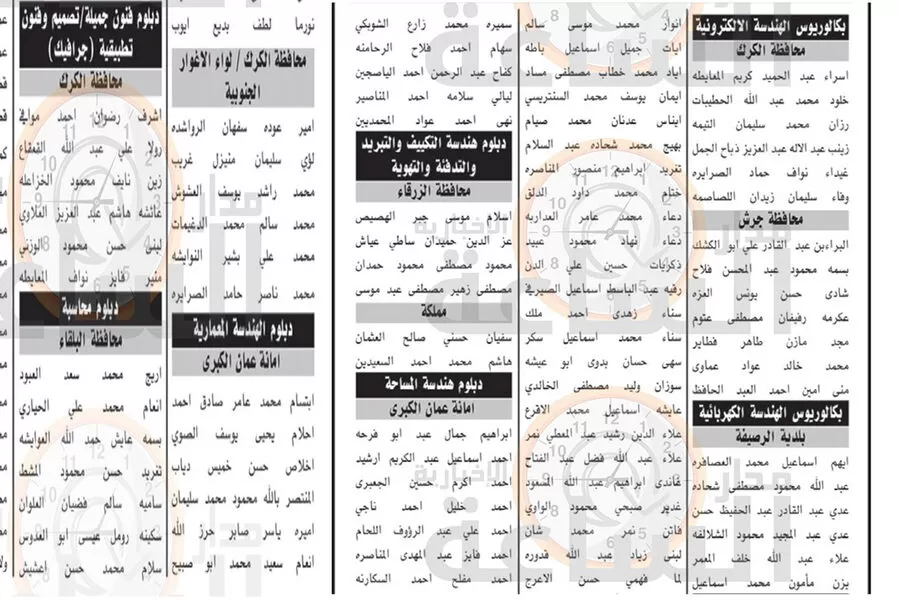 بكالوريوس الهندسة الالكترونية
محافظة الكرك
اسراء عبد الحميد كريم المعايطه
خلود محمد عبد الله الحطيبات
رزان محمد سليمان التيمه
زينب عبد الاله عبد العزيز ذباح الجمل
غيداء نواف حماد الصرايره
وفاء سليمان زيدان اللصاصمه
محافظة جرش
البراءبن عبد القادر علي ابو الكشك
بسمه محمود عبد المحسن فلاح
شادى حسن يونس العزه
عكرمه رفيفان مصطفى عتوم
مجد مازن طاهر قطاير
محمد خالد عواد عماوى
منى امين احمد العبد الحافظ
بكالوريوس الهندسة الكهربائية
بلدية الرصيفة
ايهم اسماعيل محمد العصافره
عبد الله محمود مصطفى شحاده
عدي عبد القادر عبد الحفيظ حسن
عدي عبد المجيد محمود الشلالفه
علاء عبد الله خلف المعمر
يزن مأمون محمد اسماعيل
انوار محمد موسى سالم
ايات جميل اسماعيل باطه
اياد محمد خطاب مصطفى مساد
ايمان يوسف محمد السنتريسي
ايناس عدنان محمد صيام
بهيج محمد شحاده عبد السلام
تغريد ابراهيم منصور المناصره
ختام محمد داود الدلق
دعاء محمد عامر العداربه
دعاء نهاد محمود عبيد
ذكريات حسين علي الدن
رقيه عبد الباسط اسماعيل الصيرفي
سناء زهدى احمد ملك
سناء محمد اسماعيل سكر
سهى حسان بدوى ابو عيشه
سوزان وليد مصطفى الخالدي
عايشه اسماعيل محمد الاقرع
علاء الدين رشيد عبد المعطي نمر
علاء عبد الله فضل عبد الفتاح
غاندى ابراهيم عبد الله المسعود
غدير صبحي محمود الواوي
فاتن نمر محمد شان
لبنى زياد عبد الله قدوره
لما فهمي حسن الاعرج
سميره محمد زارع الشوبكي
سهام احمد فلاح الرحامنه
كفاح عبد الرحمن احمد الياسجين
ليالي سلامه احمد المناصير
نهى احمد عواد المحمديين
دبلوم هندسة التكييف والتبريد
والتدفئة والتهوية
محافظة الزرقاء
اسلام موسى جبر الهصيص
عز الدين حميدان ساطي عياش
محمود مصطفى محمود حمدان
مصطفى زهير مصطفى عبد موسى
مملكة
سفيان حسني صالح العثمان
هاشم محمد احمد السعيدين
دبلوم هندسة المساحة
امانة عمان الكبرى
ابراهيم جمال عبد ابو فرحه
احمد اسماعيل عبد الكريم ارشيد
احمد اكرم حسين الجعبرى
احمد خليل احمد ناجي
احمد علي عبد الرؤوف اللحام
احمد فايز عبد المهدى المناصره
احمد مفلح احمد السكارنه
نورما لطف بديع ايوب
محافظة الكرك / لواء الاغوار
الجنوبية
امير عوده سفهان الرواشده
لؤي سليمان منيزل غريب
محمد راشد يوسف العشوش
محمد سالم محمد الدغيمات
محمد علي بشير النوايشه
محمد ناصر حامد الصرايره
دبلوم الهندسة المعمارية
امانة عمان الكبرى
ابتسام محمد عامر صادق احمد
احلام يحيى يوسف الصوي
اخلاص حسن خميس دياب
المنتصر بالله محمود محمد سليمان
اميره ياسر صابر حرز الله
انعام سعيد محمد ابو صبيح
دبلوم فنون جميلة/تصميم وفنون
تطبيقية (جرافيك)
محافظة الكرك
اشرف رضوان احمد موافي
رولا علي عبد الله القعقاع
زين نايف محمود الخزاعله
عائشه هاشم عبد العزيز العلاوي
لبنى حسن محمود الوزني
منير فايز نواف المعايطه
دبلوم محاسبة
محافظة البلقاء
اريج محمد سعد العبود
انعام محمد علي الحياري
بسمه عايش حمد الله العوايشه
تغريد حسن محمود المشط
ساميه سالم فضيان العلوان
سكينه رومل عيسى ابو العدوس
سلام محمد حسن اغشيش